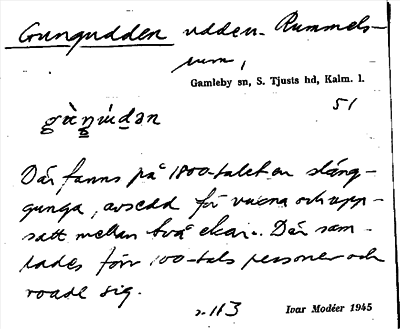 Gungudden udden. Rummels-
rum,
Gamleby sn, S. Tjusts hd, Kalm. l.
51
Där fanns på 1800-talet en släng-
gunga, avsedd för vuxna och upp-
satt mellan två ekar. Där sam-
lades förr 100-tals personer och
roade sig.
s. 113
Ivar Modéer 1945